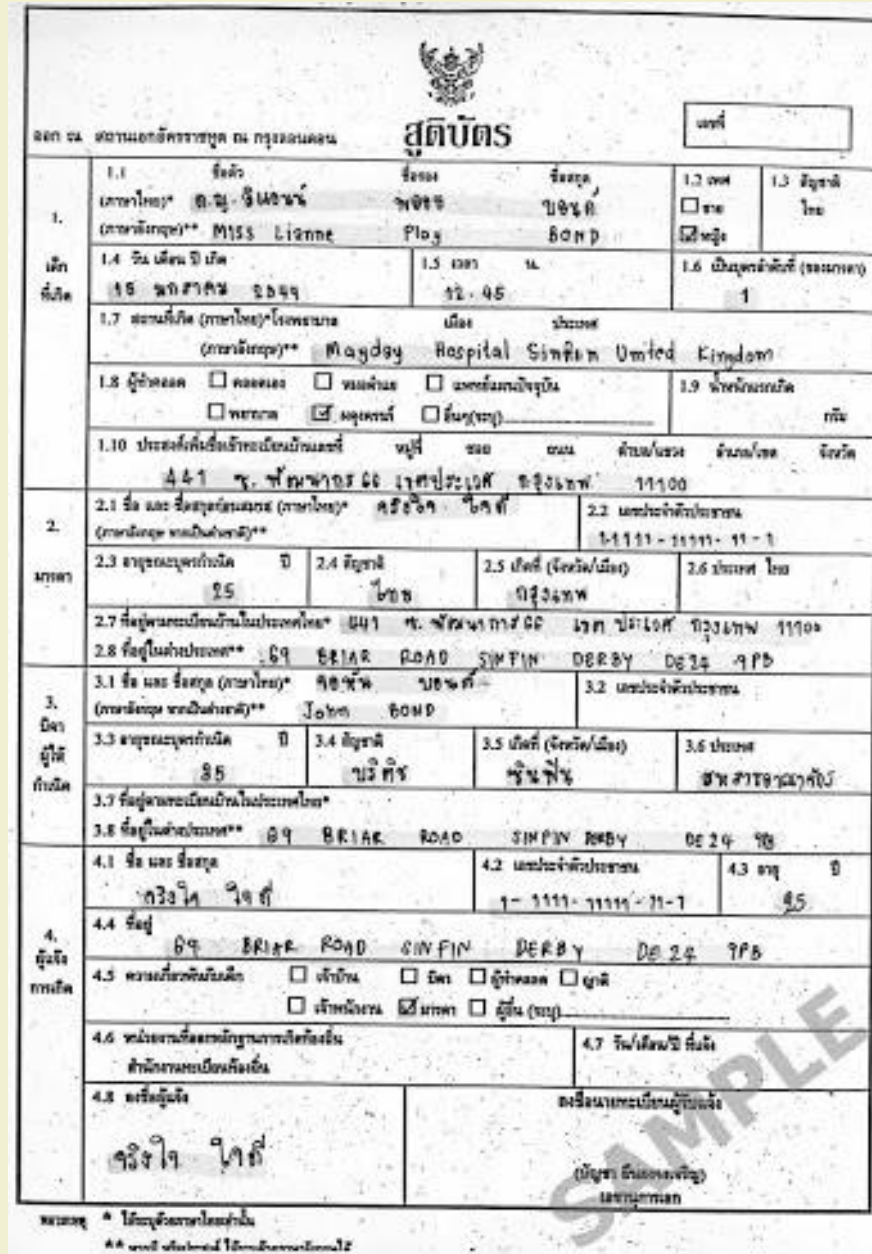 สูติบัตร
ออก ณ สถานเอกอัครราชทูต ณ กรุงลอนดอน
เลขที่
1.
เด็ก
ที่เกิด
1.1 ชื่อตัว ชื่อรอง ชื่อสกุล
(ภาษาไทย)* ด.ญ. พลอย บอนด์
(ภาษาอังกฤษ)** MISS Lianne Ploy BOND
1.2 เพศ
ชาย
หญิง
1.3 สัญชาติ
ไทย
1.4 วัน เดือน ปี เกิด
มกราคม
1.5 เวลา น.
12.45
1.6 เป็นบุตรลำดับที่ (ของมารดา)
1
1.7 สถานที่เกิด (ภาษาไทย)*โรงพยาบาล เมือง ประเทศ
(ภาษาอังกฤษ)** Mayday Hospital United Kingdom
1.8 ผู้ทำคลอด คลอดเอง หมอตำแย แพทย์แผนปัจจุบัน
พยาบาล ผดุงครรภ์ อื่นๆ(ระบุ)
1.9 น้ำหนักแรกเกิด
กรัม
1.10 ประสงค์เพิ่มชื่อเข้าทะเบียนบ้านเลขที่ หมู่ที่ ซอย ถนน ตำบล/แขวง อำเภอ/เขต จังหวัด
441 ซ. พัฒนาการ เขตประเวศ กรุงเทพ
2.
มารดา
2.1 ชื่อ และ ชื่อสกุลก่อนสมรส (ภาษาไทย)* จริงใจ ใจดี
(ภาษาอังกฤษ หากเป็นต่างชาติ)**
2.2 เลขประจำตัวประชาชน
1-1111-11111-11-1
2.3 อายุขณะบุตรกำเนิด ปี
25
2.4 สัญชาติ
ไทย
2.5 เกิดที่ (จังหวัด/เมือง)
กรุงเทพ
2.6 ประเทศ ไทย
2.7 ที่อยู่ตามทะเบียนบ้านในประเทศไทย* 441 ซ. พัฒนาการ เขต ประเวศ กรุงเทพ
2.8 ที่อยู่ในต่างประเทศ** 69 BRIAR ROAD SINFIN DERBY DE24 9PB
3.
บิดา
ผู้ให้
กำเนิด
3.1 ชื่อ และ ชื่อสกุล (ภาษาไทย)* บอนด์
(ภาษาอังกฤษ หากเป็นต่างชาติ)** John BOND
3.2 เลขประจำตัวประชาชน
3.3 อายุขณะบุตรกำเนิด ปี
35
3.4 สัญชาติ
บริติช
3.5 เกิดที่ (จังหวัด/เมือง)
ซินฟิน
3.6 ประเทศ
สหราชอาณาจักร
3.7 ที่อยู่ตามทะเบียนบ้านในประเทศไทย*
3.8 ที่อยู่ในต่างประเทศ** 69 BRIAR ROAD SINFIN DERBY DE24
4.
ผู้แจ้ง
การเกิด
4.1 ชื่อ และ ชื่อสกุล
จริงใจ ใจดี
4.2 เลขประจำตัวประชาชน
1-1111-11111-11-1
4.3 อายุ ปี
25
4.4 ที่อยู่
69 BRIAR ROAD SINFIN DERBY DE24 9PB
4.5 ความเกี่ยวพันกับเด็ก เจ้าบ้าน บิดา ผู้ทำคลอด ญาติ
เจ้าพนักงาน มารดา ผู้อื่น (ระบุ)
4.6 หน่วยงานที่ออกหลักฐานการเกิดท้องถิ่น
สำนักงานทะเบียนท้องถิ่น
4.7 วัน/เดือน/ปี ที่แจ้ง
4.8 ลงชื่อผู้แจ้ง
จริงใจ ใจดี
ลงชื่อนายทะเบียนผู้รับแจ้ง
เลขานุการเอก
SAMPLE
หมายเหตุ * ให้ระบุด้วยภาษาไทยเท่านั้น